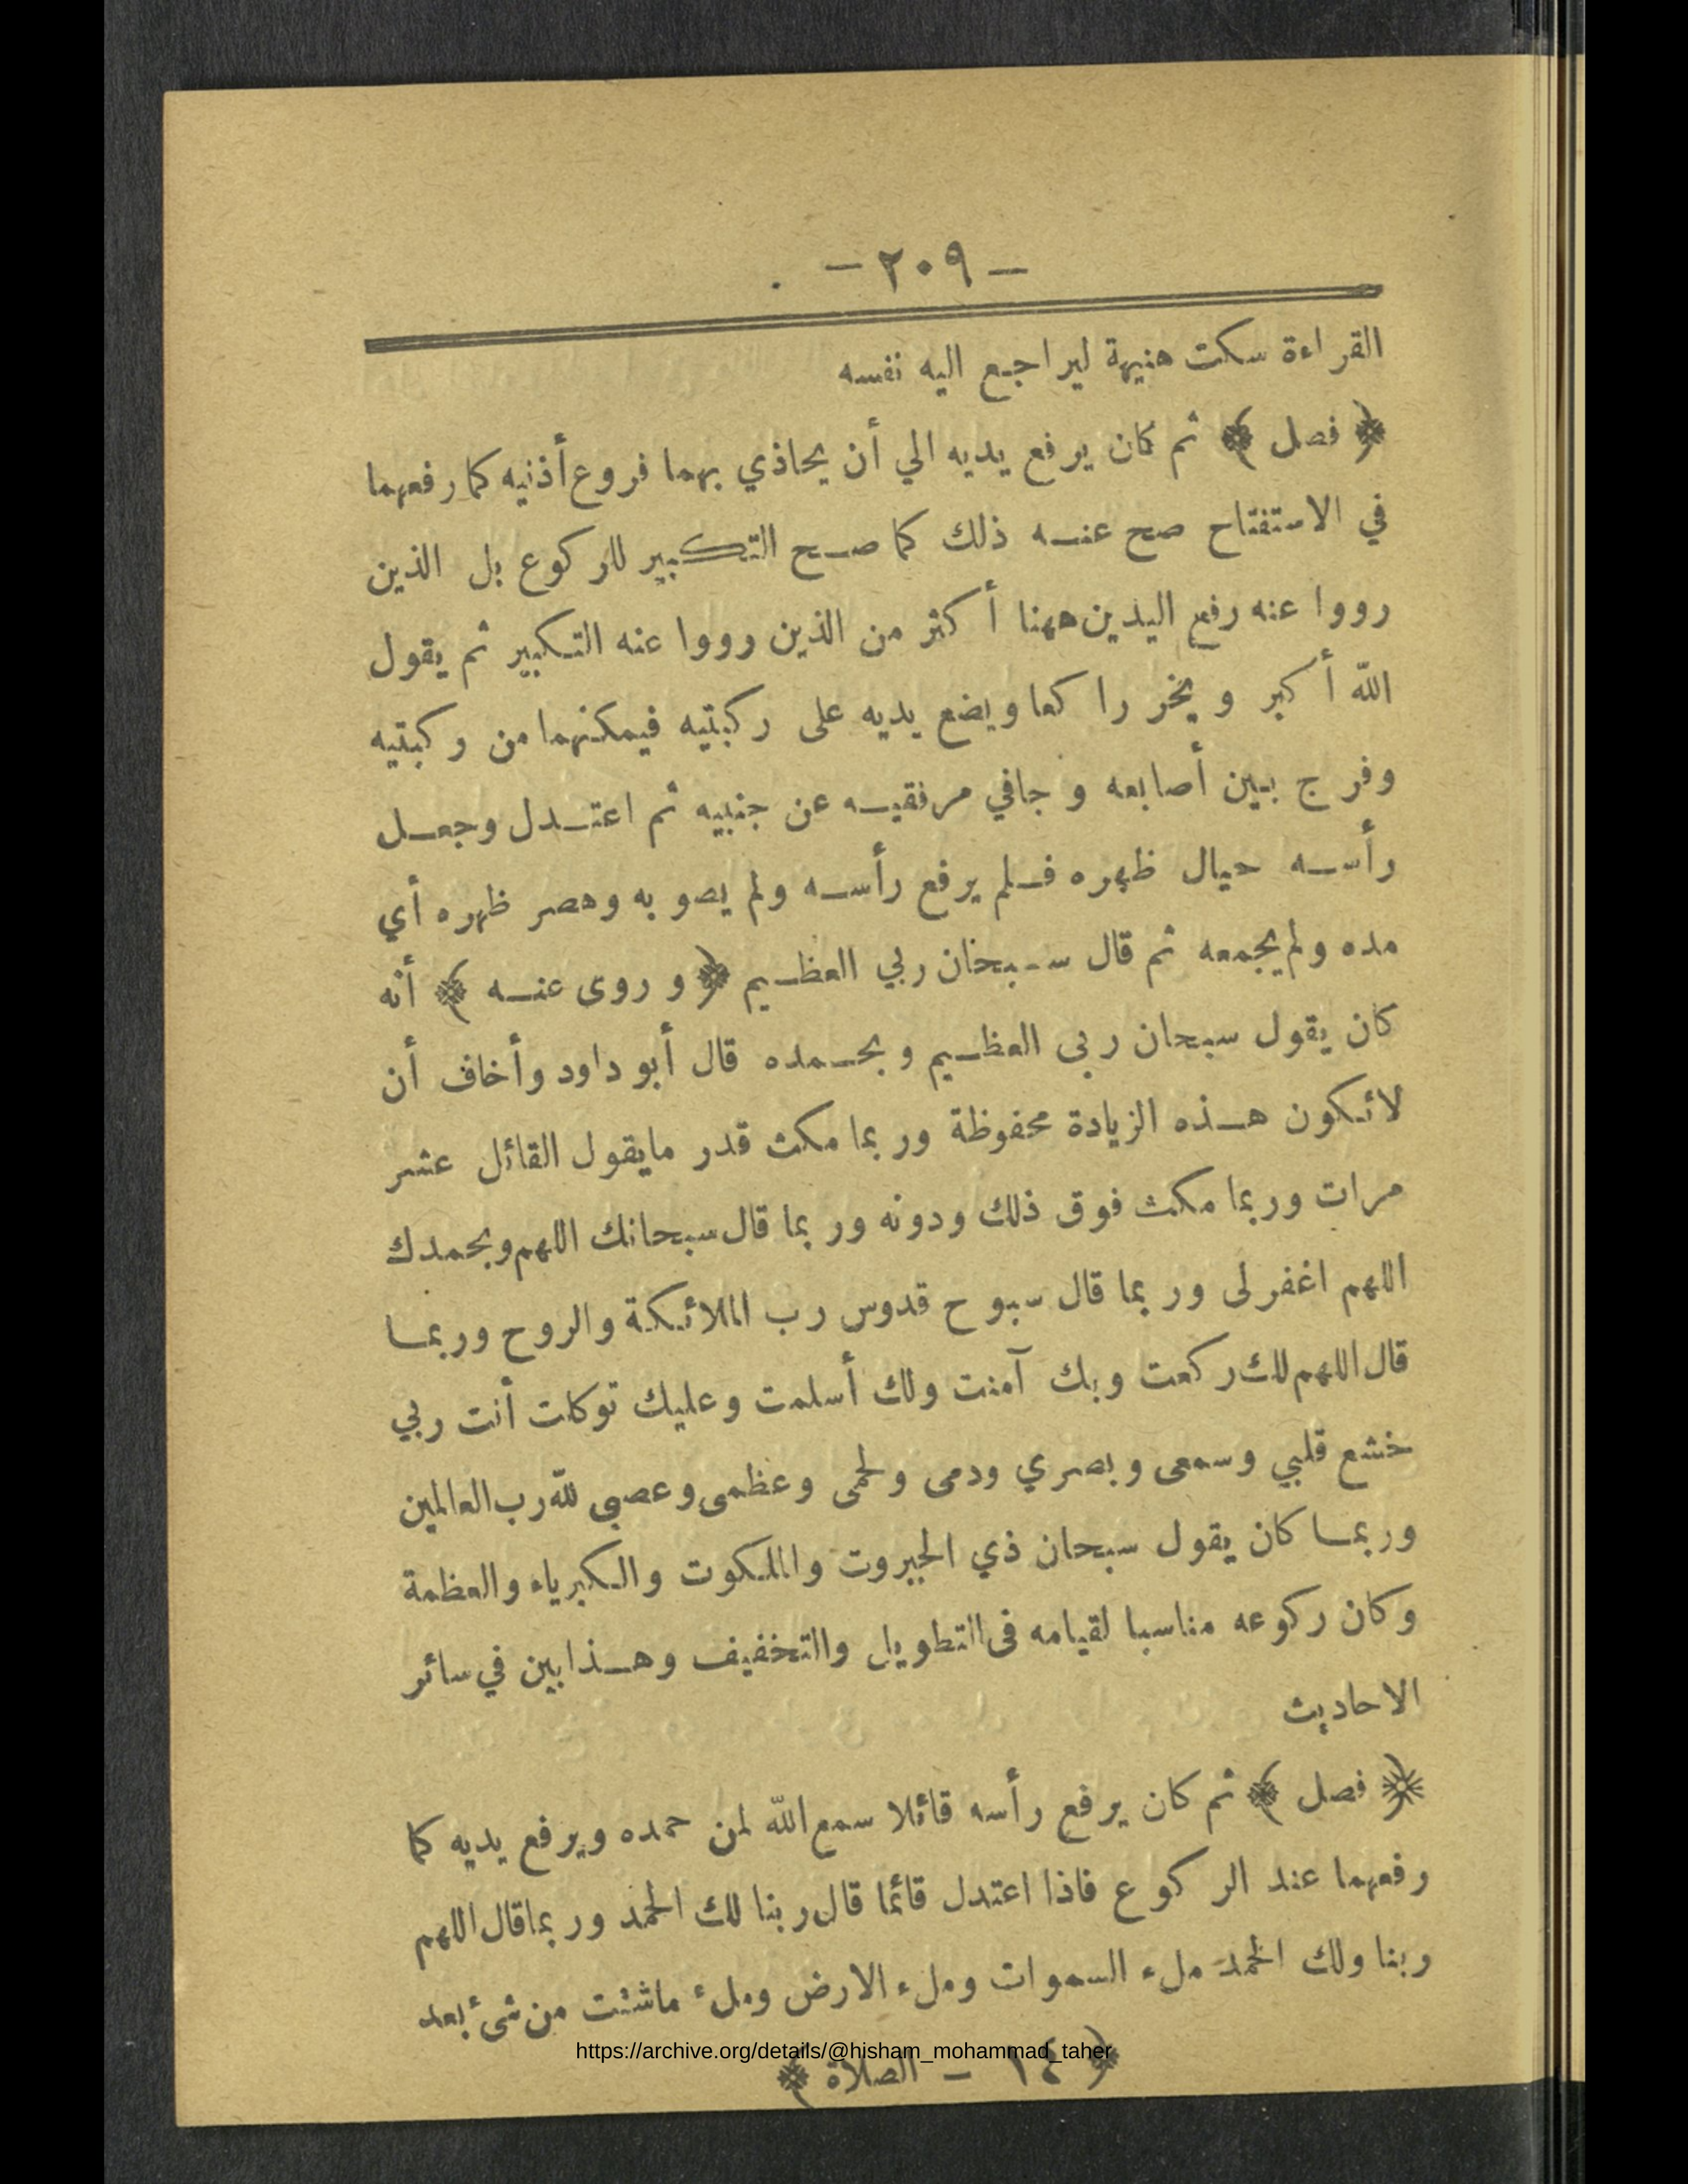 - ٢٠٩ -
القراءة سكت هنيهة ليراجع اليه نفسه
﴿ فصل ﴾ ثم كان يرفع يديه الي أن يحاذي بهما فروع أذنيه كما رفعهما
في الاستفتاح صح عنه ذلك كما صح التكبير للركوع بل الذين
رووا عنه رفع اليدين ههنا أكثر من الذين رووا عنه التكبير ثم يقول
الله أكبر ويخر راكعا ويضع يديه على ركبتيه فيمكنهما من ركبتيه
وفرج بين أصابعه وجافي مرفقيه عن جنبيه ثم اعتدل وجعل
رأسه حيال ظهره فلم يرفع رأسه ولم يصوبه وهصر ظهره أي
مده ولم يجمعه ثم قال سبحان ربي العظيم ﴿ وروى عنه ﴾ أنه
كان يقول سبحان ربى العظيم وبحمده قال أبو داود وأخاف أن
لاتكون هذه الزيادة محفوظة وربما مكث قدر مايقول القائل عشر
مرات وربما مكث فوق ذلك ودونه وربما قال سبحانك اللهم وبحمدك
اللهم اغفرلى وربما قال سبوح قدوس رب الملائكة والروح وربما
قال اللهم لك ركعت وبك آمنت ولك أسلمت وعليك توكلت أنت ربي
خشع قلبي وسمعى وبصري ودمى ولحمى وعظمى وعصبى لله رب العالمين
وربما كان يقول سبحان ذي الجبروت والملكوت والكبرياء والعظمة
وكان ركوعه مناسبا لقيامه فى التطويل والتخفيف وهذا بين في سائر
الاحاديث
﴿ فصل ﴾ ثم كان يرفع رأسه قائلا سمع الله لمن حمده ويرفع يديه كما
رفعهما عند الركوع فاذا اعتدل قائما قال ربنا لك الحمد وربما قال اللهم
ربنا ولك الحمد ملء السموات وملء الارض وملء ماشئت من شىء بعد
﴿ ١٤ - الصلاة ﴾
https://archive.org/details/@hisham_mohammad_taher